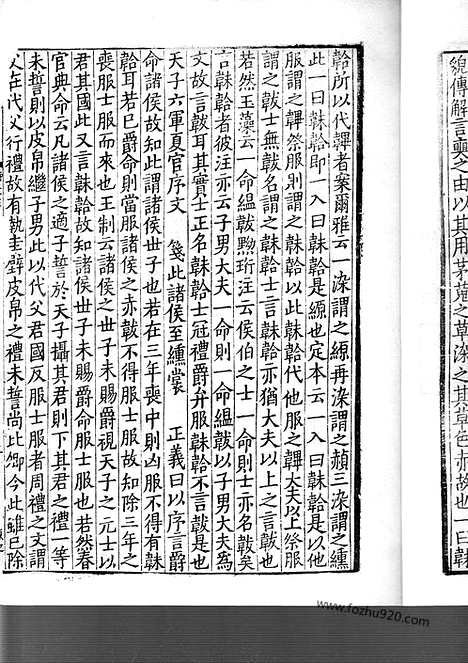 貌傳解言奭之由以其用茅蒐之草染之其草色赤故也一曰韎
韐所以代韠者案爾雅云一染謂之縓再染謂之赬三染謂之纁
此一曰韎韐即一入曰韎韐是縓也定本云一入曰韎韐是以他
服謂之韠祭服則謂之韍此韎韐代他服之韠大夫以上祭服
謂之韍士無韍名謂之韎韐是韎韐亦猶大夫以上之言韍也
若然玉藻云一命縕韍黝珩注云侯伯之士一命則士亦名韍矣
言韎韐者彼注亦云子男大夫一命則一命縕韍以子男大夫為
文故言韍耳其實士正名韎韐士冠禮爵弁服韎韐不言韍是也
天子六軍夏官序文 箋此諸侯至纁裳 正義曰以序言爵
命諸侯故知此謂諸侯世子也若在三年喪中則凶服不得有韎
韐耳若已爵命則當服諸侯之赤韍不得服士服故知除三年之
喪服士服而來也王制云諸侯之世子未賜爵視天子之元士以
君其國此又言韎韐故知諸侯世子未賜爵命服士服也若然春
官典命云凡諸侯之適子誓於天子攝其君則下其君之禮一等
未誓則以皮帛繼子男此以代父君國反服士服者周禮之文謂
父在代父行禮故有執圭璧皮帛之禮未誓尚比卿今此雖已除
www.fozhu920.com